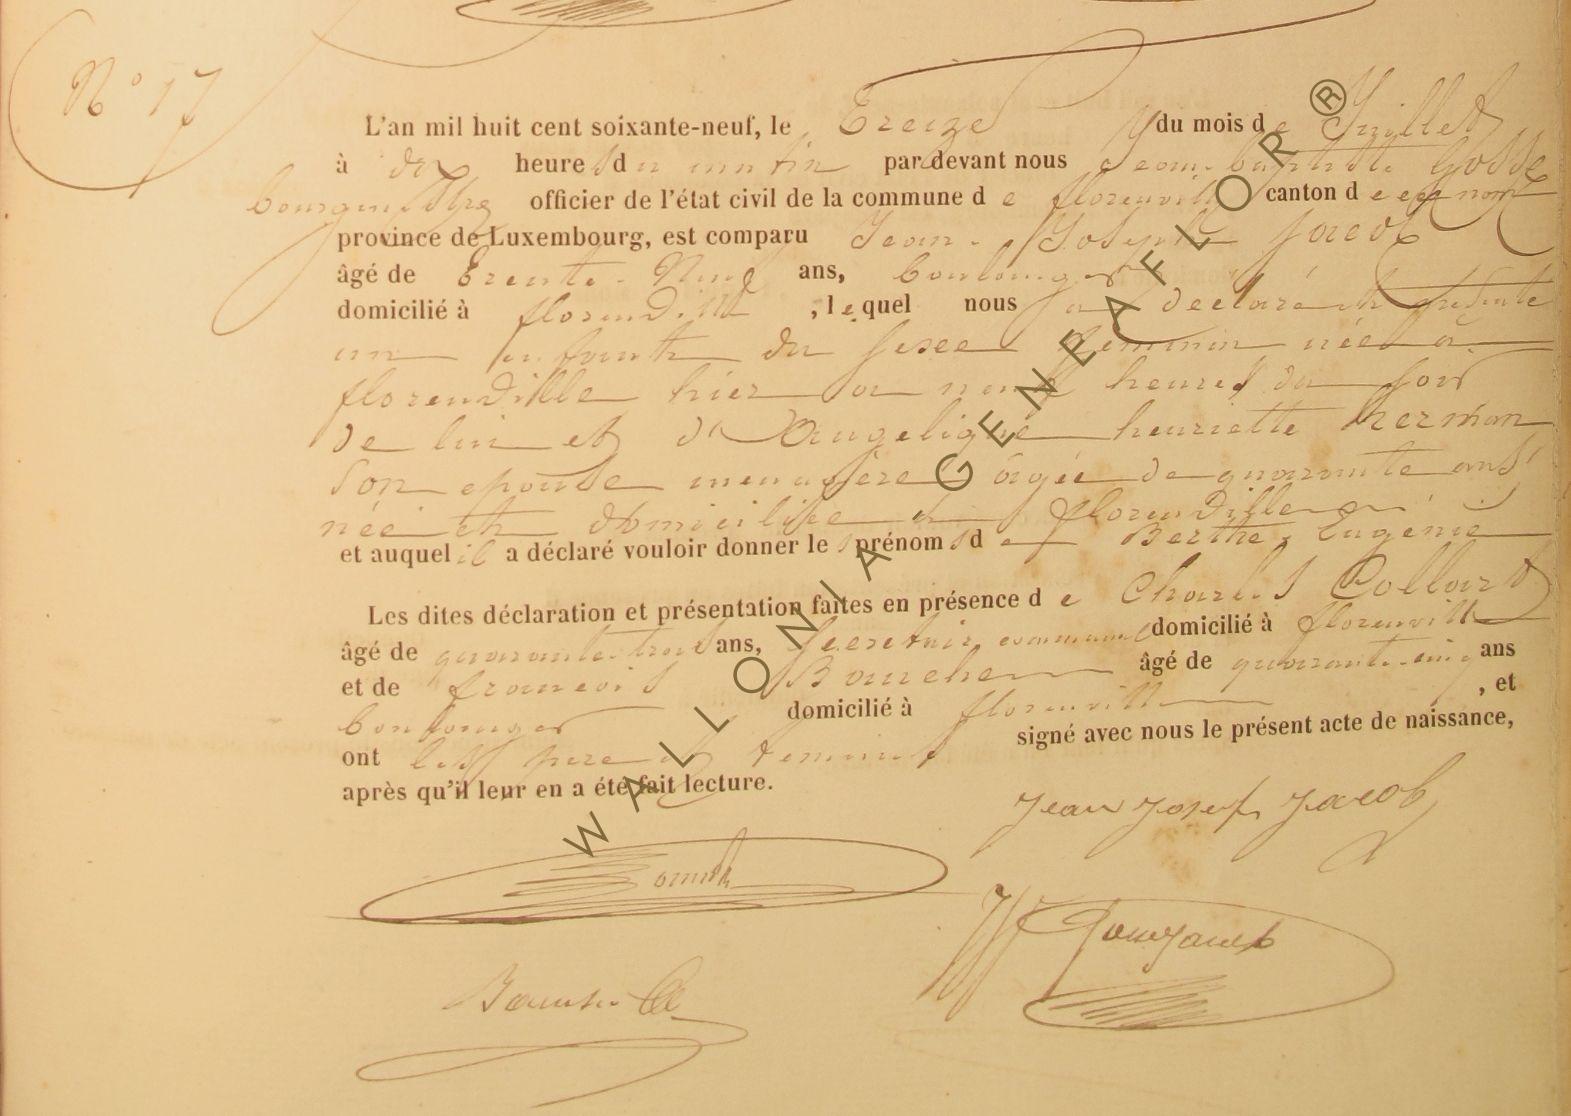 N° 17
L'an mil huit cent soixante-neuf, le Treize du mois de Juillet
à dix heures du matin par devant nous Jean-baptiste Gosse
bourgmestre officier de l'état civil de la commune de florenville canton de ce nom
province de Luxembourg, est comparu Jean-Joseph Jacob
âgé de Trente-Neuf ans, boulanger
domicilié à florenville, lequel nous a déclaré et présenté
un enfant du sexe féminin née à
florenville hier à neuf heures du soir
de lui et d'Angelique henriette herman
son epouse menagère âgée de quarante ans
née et domiciliée à florenville
et auquel il a déclaré vouloir donner les prénoms de Berthe, Eugénie
Les dites déclaration et présentation faites en présence de Charles Collard
âgé de quarante trois ans, Secretaire communal domicilié à florenville
et de francois âgé de quarante-cinq ans
boulanger domicilié à florenville, et
ont les père et temoins signé avec nous le présent acte de naissance,
après qu'il leur en a été fait lecture.
Jean Josef Jacob
WALLONIA GENEAFLOR ®